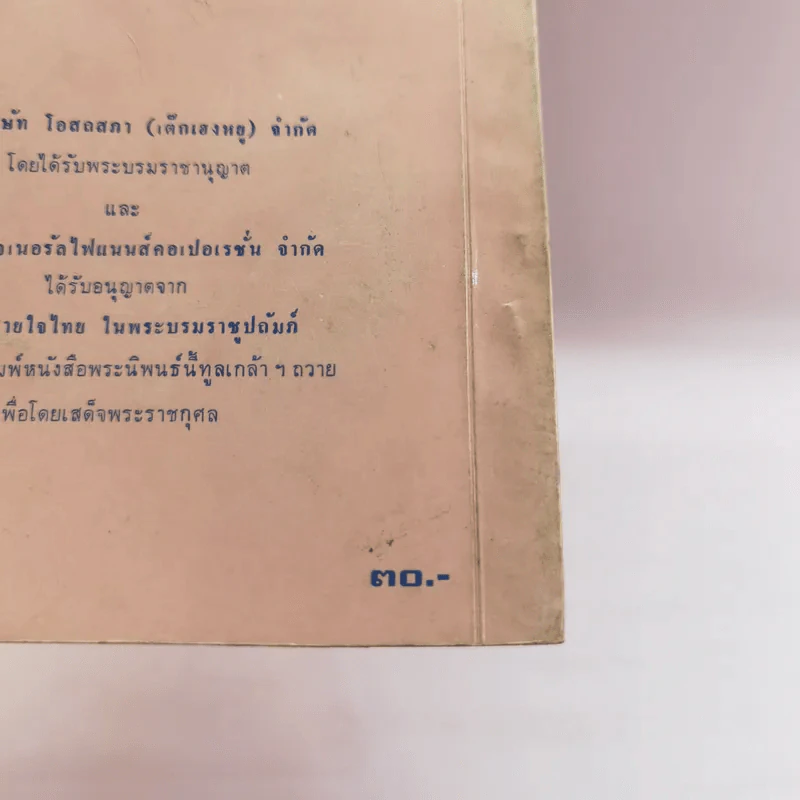 ษัท โอสถสภา (เต๊กเฮงหยู) จำกัด
โดยได้รับพระบรมราชานุญาต
และ
เนอรัลไฟแนนส์คอเปอเรชั่น จำกัด
ได้รับอนุญาตจาก
ายใจไทย ในพระบรมราชูปถัมภ์
มพ์หนังสือพระนิพนธ์นี้ทูลเกล้า ฯ ถวาย
พื่อโดยเสด็จพระราชกุศล
๓๐.-